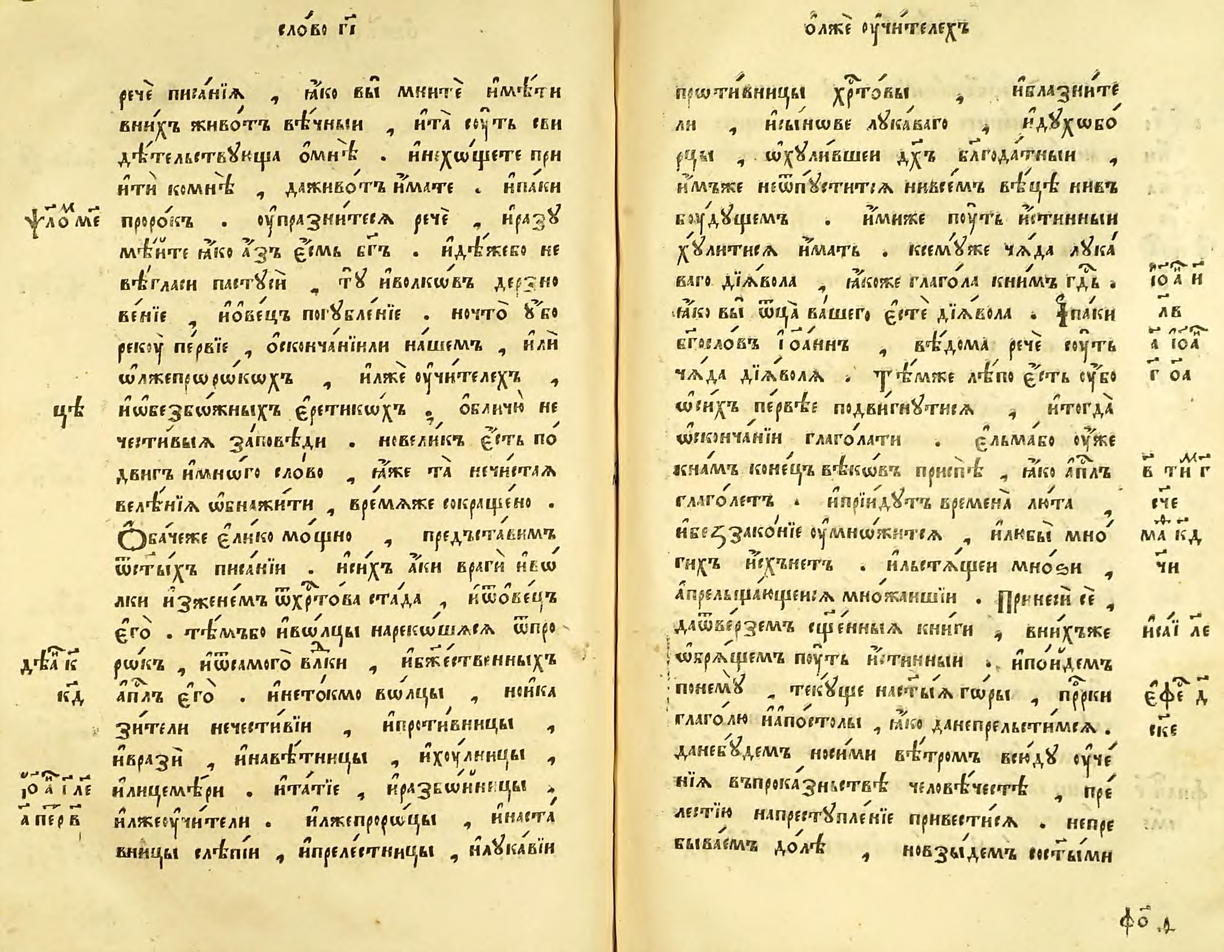 сло́во гі҃
речѐ писа́нїѧ , ꙗ҆́ко вы̀ мнитѐ и҆мѣ́ти
вни́хъ живо́тъ вѣ́чныи , и҆та̀ сꙋ́ть сви
дѣ́тельствꙋюща ѡ҆мнѣ̀ . и҆нехо́щете прі
и҆тѝ комнѣ̀ , даживо́тъ и҆́мате . и҆па́ки
ѱало́м ме҃
проро́къ . ᲂу҆праздни́теся речѐ , и҆разꙋ
мѣ́йте ꙗ҆́ко а҆́зъ є҆́смь бг҃ъ . и҆дѣ́жебо не
вѣ́гласи пастꙋсѝ , тꙋ̀ и҆волко́въ дерзно
ве́нїе , и҆ѻ҆ве́цъ погꙋбле́нїе . ночто̀ ᲂу҆́бо
рекꙋ̀ пе́рвїе , ѡ҆сконча́нїили на́шемъ , и҆лѝ
ѡ҆лжепрѡро́кѡхъ , и҆лжѐ ᲂу҆чи́телехъ ,
цѣ
и҆ѡ҆безбо́жныхъ є҆ретикѡ́хъ , ѡ҆бличю̀ не
чести́выѧ за́повѣди . новели́къ є҆́сть по́
двигъ и҆мно́го сло́во , ꙗ҆́же та̀ нечи́стаѧ
велѣ́нїѧ ѡ҆бнажи́ти , вре́мѧже сокраще́но .
Ѻ҆ба́чеже є҆ли́ко мо́щно , предъста́вимъ
ѿст҃ы́хъ писа́нїи . и҆си́хъ а҆́ки врагѝ и҆во́
лки и҆зжене́мъ ѿхр҇то́ва ста́да , и҆ѿѻ҆ве́цъ
є҆гѡ̀ . тѣ́мъбо и҆во́лцы нареко́шасѧ ѿпро
дѣꙗ҆ к҃
ро́къ , и҆ѿсамого̀ влⷣки , и҆бж҃е́ственныхъ
к҃д
а҆пⷭ҇лъ є҆го̀ . и҆нето́кмо во́лцы , нои҆ка
зи́тели нечести́вїи , и҆проти́вницы ,
и҆вразѝ , и҆навѣ́тницы , и҆хꙋ́лницы ,
і҆ѻ҆а́ і҃ ле
и҆лицемѣ́ри . и҆та́тїе , и҆разбо́йницы ,
а҃ пер в҃
и҆лжеꙋчи́тели . и҆лжепроро́цы , и҆наста́
вницы слѣпі́и , и҆преле́стницы , и҆лꙋка́вїи
ѻ҆лжѐ ᲂу҆чи́телехъ
проти́вницы хр҇то́вы , и҆блазни́те
ли , и҆сы́нове лꙋка́ваго , и҆дꙋхобо́
рцы , ѡ҆хꙋ́лившеи дх҃ъ бл҃года́тныи ,
и҆́мъже неѿпꙋ́стится нивсе́мъ вѣ́цѣ нивъ
бꙋ́дꙋщемъ . и҆́миже пꙋ́ть и҆́стинныи
хꙋ́литисѧ и҆́мать . ксемꙋ́же ча́да лꙋка́
ваго дїѧ́вола , ꙗ҆́коже глаго́ла кни́мъ гдⷭ҇ь .
і҆ѻ҆а́ н҃
ꙗ҆́ко вы̀ ѿц҃а̀ ва́шего є҆стѐ дїѧ́вола . І҆па́ки
л҃в
бг҃осло́въ і҆ѻ҆а́ннъ , вѣ́дома речѐ сꙋ́ть
а҃ і҆ѻ҆а́
ча́да дїѧ́волѧ . Тѣ́мже лѣ́по є҆́сть ᲂу҆́бо
г҃ ѻ҆а
ѡ҆си́хъ пе́рвѣе подви́гнꙋтисѧ , и҆тогда̀
ѡ҆сконча́нїи глаго́лати . є҆льма́бо ᲂу҆́же
кна́мъ коне́цъ вѣко́въ приспѣ̀ , ꙗ҆́ко а҆пⷭ҇лъ
в҃ ти́м г҃
глаго́летъ . и҆прїи́дꙋтъ времена̀ лю́та ,
сч҃е
и҆беззако́нїе ᲂу҆мно́житсѧ , и҆любы̀ мно́
маⷴ к҃д
гихъ и҆́схънетъ . и҆льстѧ́щеи мно́ѕи ,
ч҃и
а҆прельща́ющеисѧ мно́жаишїи . Принесѝ сѐ ,
даѿве́рземъ сщ҃е́нныѧ кни́ги , вни́хъже
и҆са́і ле
ѡ҆брѧ́щемъ пꙋ́ть и҆́стинныи . и҆по́идемъ
понемꙋ̀ , текꙋ́ще наст҃ы́ѧ го́ры , прⷪ҇ки
є҆фе́ д҃
глаго́лю и҆а҆по́столы , ꙗ҆́ко данепрельсти́мсѧ .
ск҃е
данебꙋ́демъ носи́ми вѣ́тромъ всю́дꙋ ᲂу҆че́
нїѧ въпрока́зньствѣ человѣ́честѣ , пре́
лестїю напрестꙋпле́нїе привести́сѧ . непре
быва́емъ до́лѣ , новзы́демъ сост҃ы́ми
фо҃ д